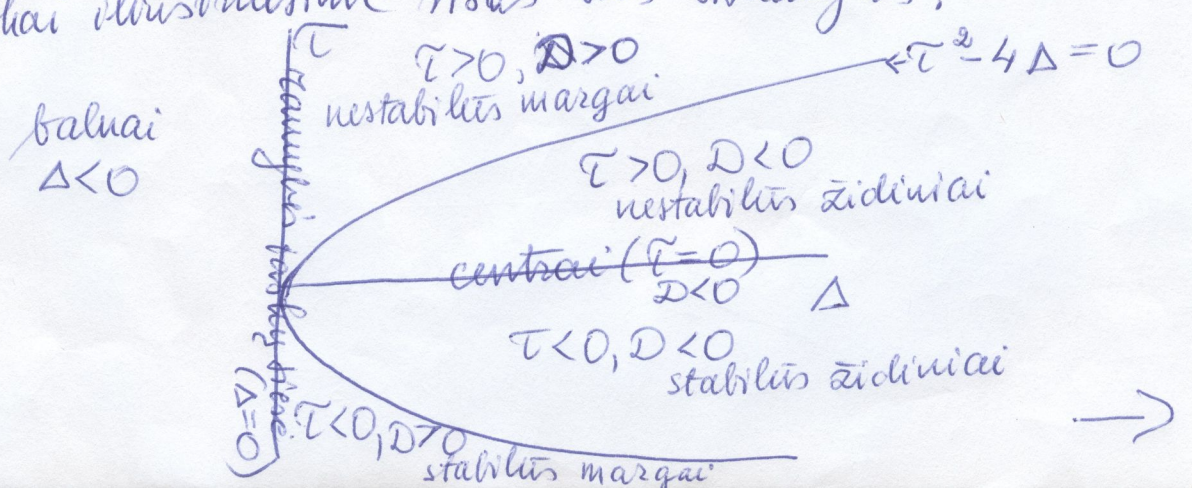 τ
τ>0, D>0
nestabilūs margai
←τ²-4Δ=0
balnai
Δ<0
τ>0, D<0
nestabilūs židiniai
centrai (τ=0)
D<0
Δ
τ<0, D<0
stabilūs židiniai
ramybės taškų tiesė
(Δ=0)
τ<0, D>0
stabilūs margai